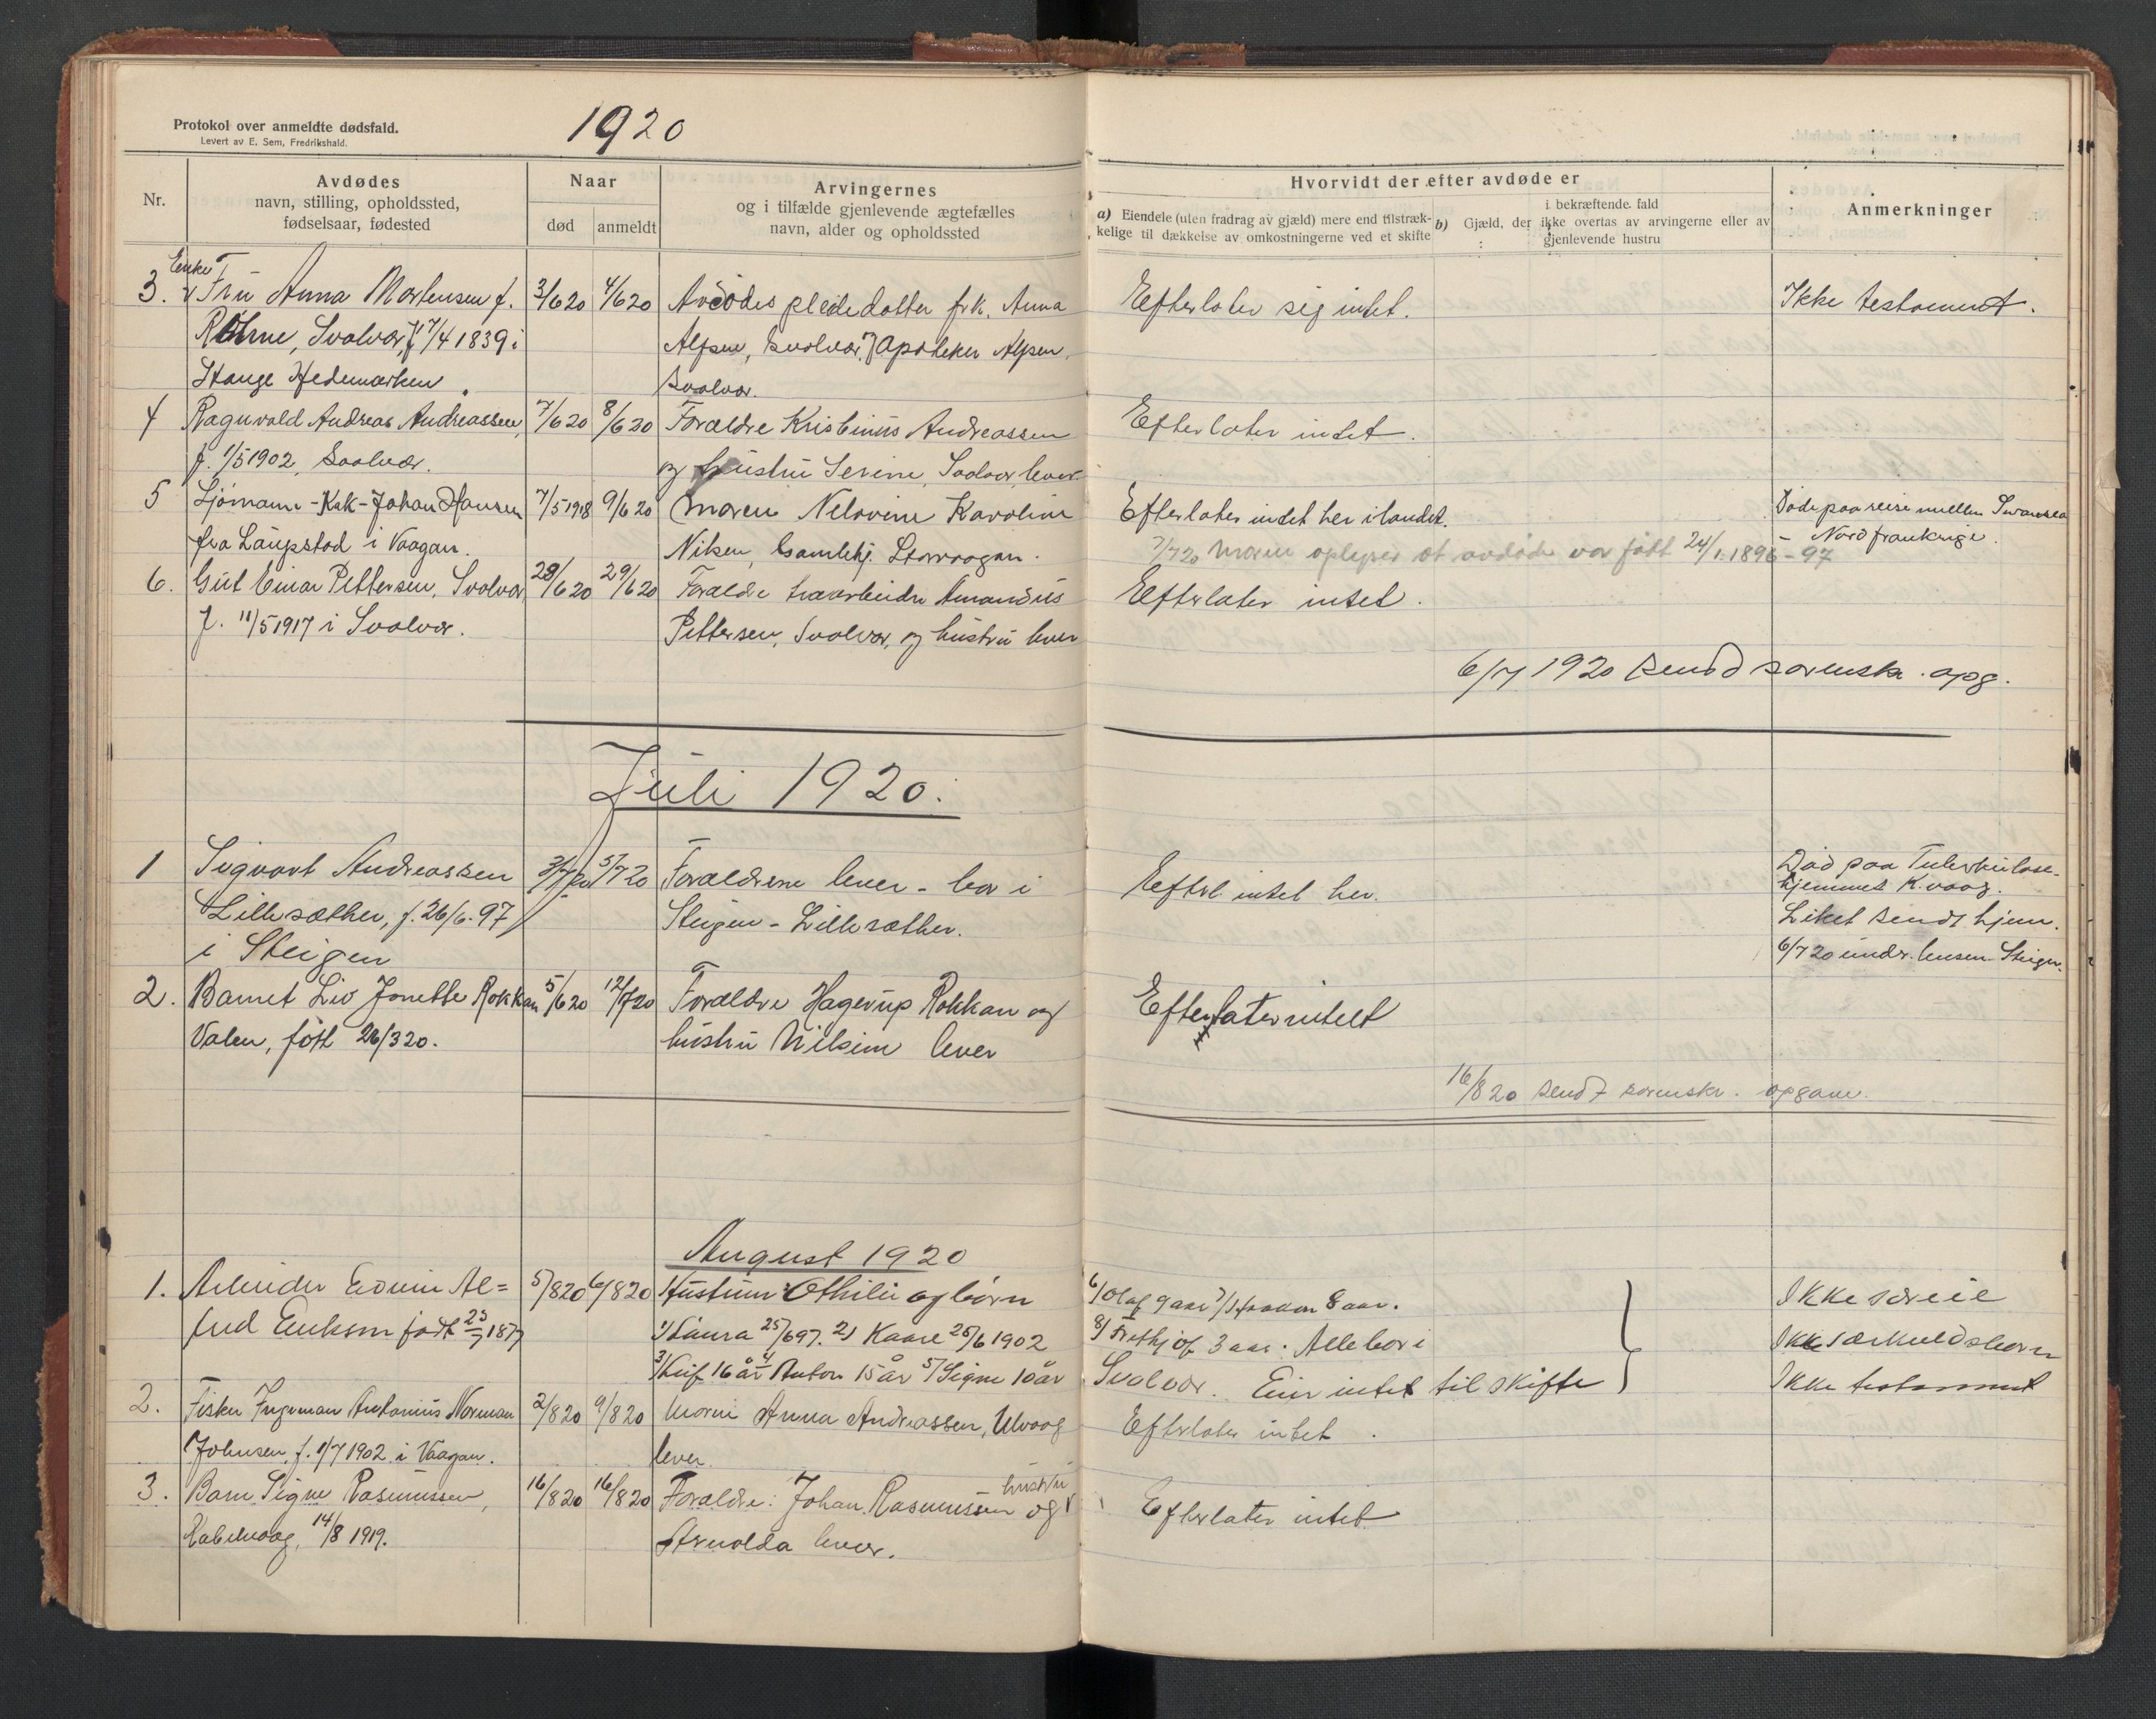 Protokol over anmeldte dødsfald.
Levert av E. Sem, Fredrikshald.
1920
Nr.
Avdødes
navn, stilling, opholdssted,
fødselsaar, fødested
Naar
død
anmeldt
Arvingernes
og i tilfælde gjenlevende ægtefælles
navn, alder og opholdssted
Hvorvidt der efter avdøde er
a) Eiendele (uten fradrag av gjæld) mere end tilstræk-
kelige til dækkelse av omkostningerne ved et skifte
i bekræftende fald
b) Gjæld, der ikke overtas av arvingerne eller av
gjenlevende hustru
Anmerkninger
Enke
3. Fru Anna Mortensen f. 3/6 20 4/6 20 Avdødes pleiedatter frk. Anna Efterlater sig intet. Ikke testament.
Svolvær, f 17/4 1839 i Alpsen, Svolvær, Apoteker Alpsen,
Stange Hedemarken. Svolvær.
4 Ragnvald Andreas Andreassen, 7/6 20 8/6 20 Forældre Kristinius Andreassen Efterlater intet.
f. 1/5 1902, Svolvær. og hustru Serine, Svolvær, lever
5 Sjömann-Kok-Johan Hansen 7/5 1918 9/6 20 Moren Karoline Efterlater intet her i landet. Døde paa reise mellem Swansea
fra Laupstad i Vaagan. Nilsen, Gamlehj. Storvaagan. 7/7 20 Moren oplyser at avdøde var født 24/1. 1896-97 - Nordfrankrige.
6. Gut Einar Pettersen, Svolvær, 28/6 20 29/6 20 Forældre Amandus Efterlater intet.
f. 11/5 1917 i Svolvær. Pettersen, Svolvær, og hustru lever
6/7 1920 sendt sorenskr. opg.
Juli 1920.
1 Sigvart Andreassen 3/7 20 5/7 20 Forældrene lever - bor i Efterl. intet her. Død paa Tuberkulose-
Lillesæther, f. 26/6. 97 Steigen - Lillesæther. hjemmet K.vaag.
i Steigen Liket sendt hjem.
6/7 20 undr. lensm. Steigen.
2. Barnet Liv Jonette Rokkan 5/6 20 12/7 20 Forældre Hagerup Rokkan og Efterlater intet
Valen, født 26/3 20. hustru lever
16/8 20 sendt sorenskr. opgave.
August 1920
1. Arbeider Edvin Al= 5/8 20 6/8 20 Hustruen Othilie og børn 6/ Olaf 9 aar 7/ Haakon 8 aar. Ikke særeie
fred Eriksen født 23/7 187 1/ Laura 25/6 97. 2/ Kaare 25/6 1902 8/ Frithjof 3 aar. Alle bor i Ikke særkuldsbørn
3/ Leif 16 år 4/ Anton 15 år 5/ Signe 10 år Svolvær. Eier intet til skifte Ikke testament
2. Fisker Ingeman Antonius Norman 2/8 20 9/8 20 Moren Anna Andreassen, Ulvaag Efterlater intet.
Johnsen, f. 1/7 1902 i Vaagan. lever.
3. Barn Signe Rasmussen, 16/8 20 16/8 20 Forældre: Johan Rasmussen og hustru Efterlater intet
Kabelvaag, 14/8 1919. Arnolda lever.